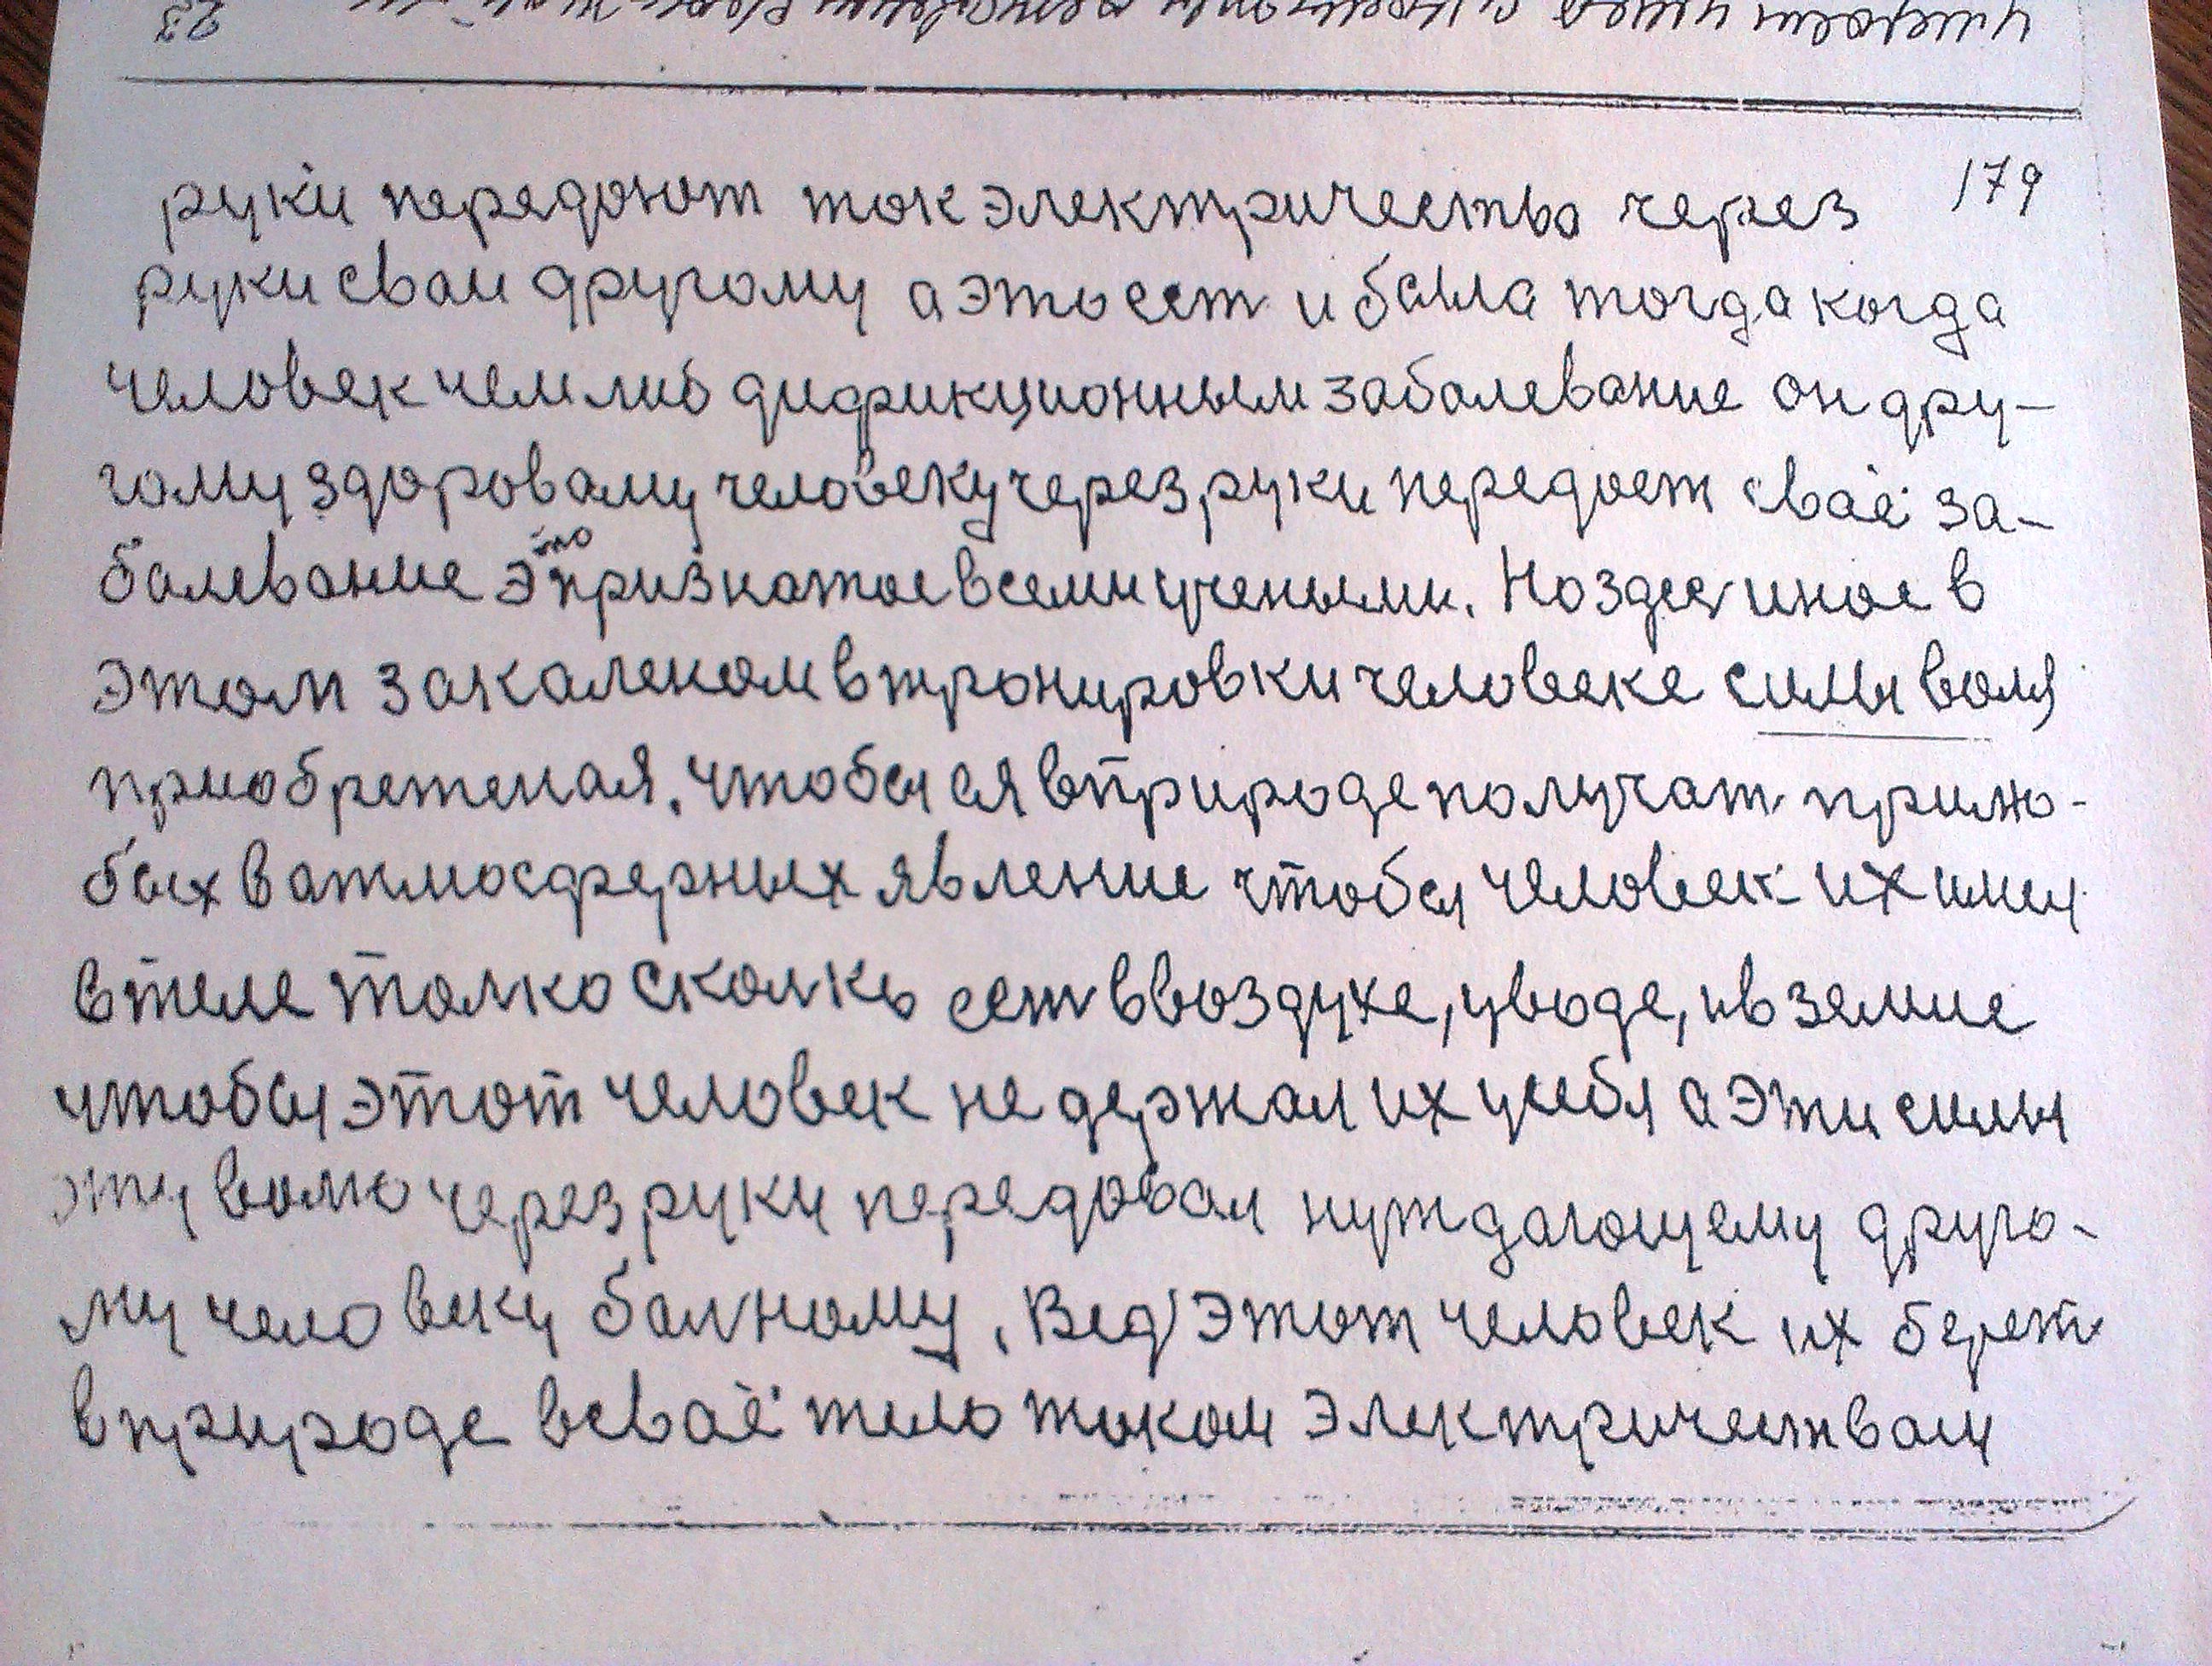 179
руки передоют ток электричество через
руки сваи другому а это ест и была тогда когда
человек чем либо дификционным заболевание он дру-
гому здоровому человеку через руки передоет сваё за-
болевание это признатое всеми учеными. Но здес иное в
этом закаленом в тронировки человеке силы воля
приобретеная. чтобы ся в природе получат при лю-
бых в атмосферных явление чтобы человек их имел
в теле толко сколко ест в воздухе, у воде, и в земле
чтобы этот человек не держал их у себя а эти силы
эту волю через руки передовал нуждающему друго-
му человеку балному. Вед этот человек их берет
в природе в сваё тело током электричествам